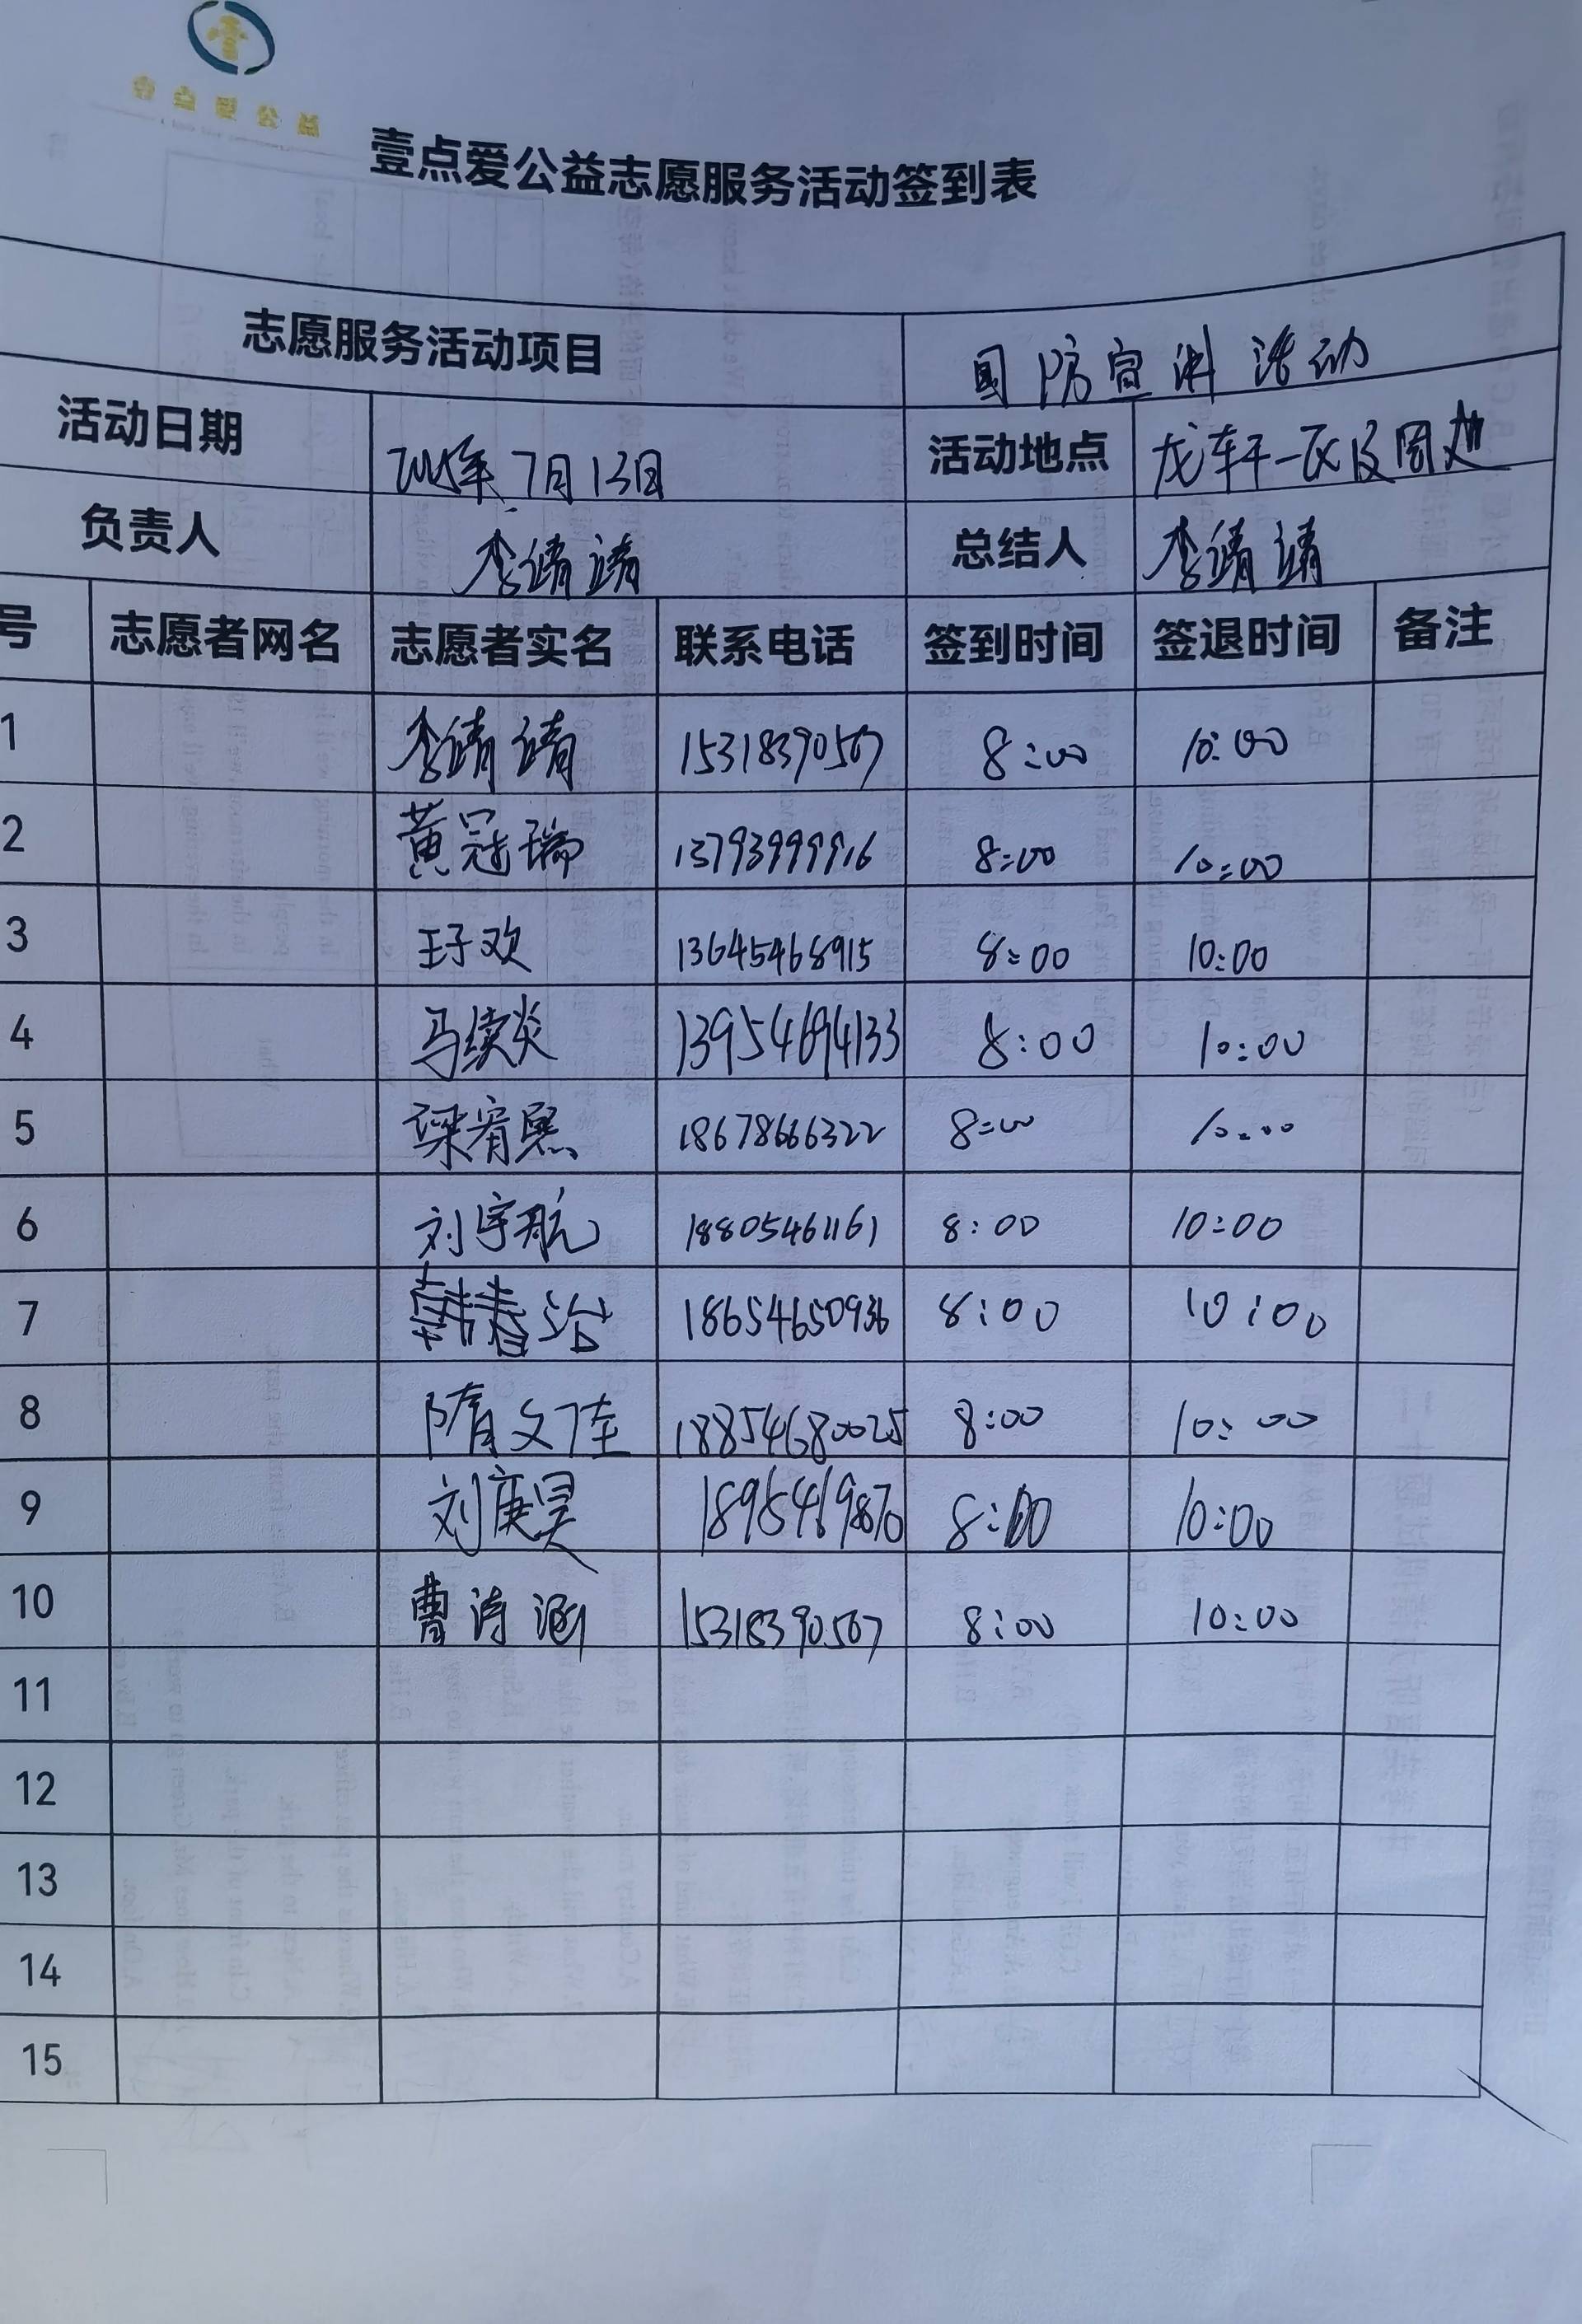 壹点爱公益志愿服务活动签到表
志愿服务活动项目 国防宣讲活动
活动日期 2025年7月13日 活动地点 龙轩一区及周边
负责人 李靖靖 总结人 李靖靖
号 志愿者网名 志愿者实名 联系电话 签到时间 签退时间 备注
1 李靖靖 15318390567 8:00 10:00
2 黄冠瑞 13793999916 8:00 10:00
3 王子欢 13645468915 8:00 10:00
4 马续炎 13954694133 8:00 10:00
5 梁宥熙 18678666322 8:00 10:00
6 刘宇航 18805461161 8:00 10:00
7 韩春治 18654650936 8:00 10:00
8 隋文佳 18854680025 8:00 10:00
9 刘庚昊 8:00 10:00
10 曹诗涵 15318390567 8:00 10:00
11
12
13
14
15